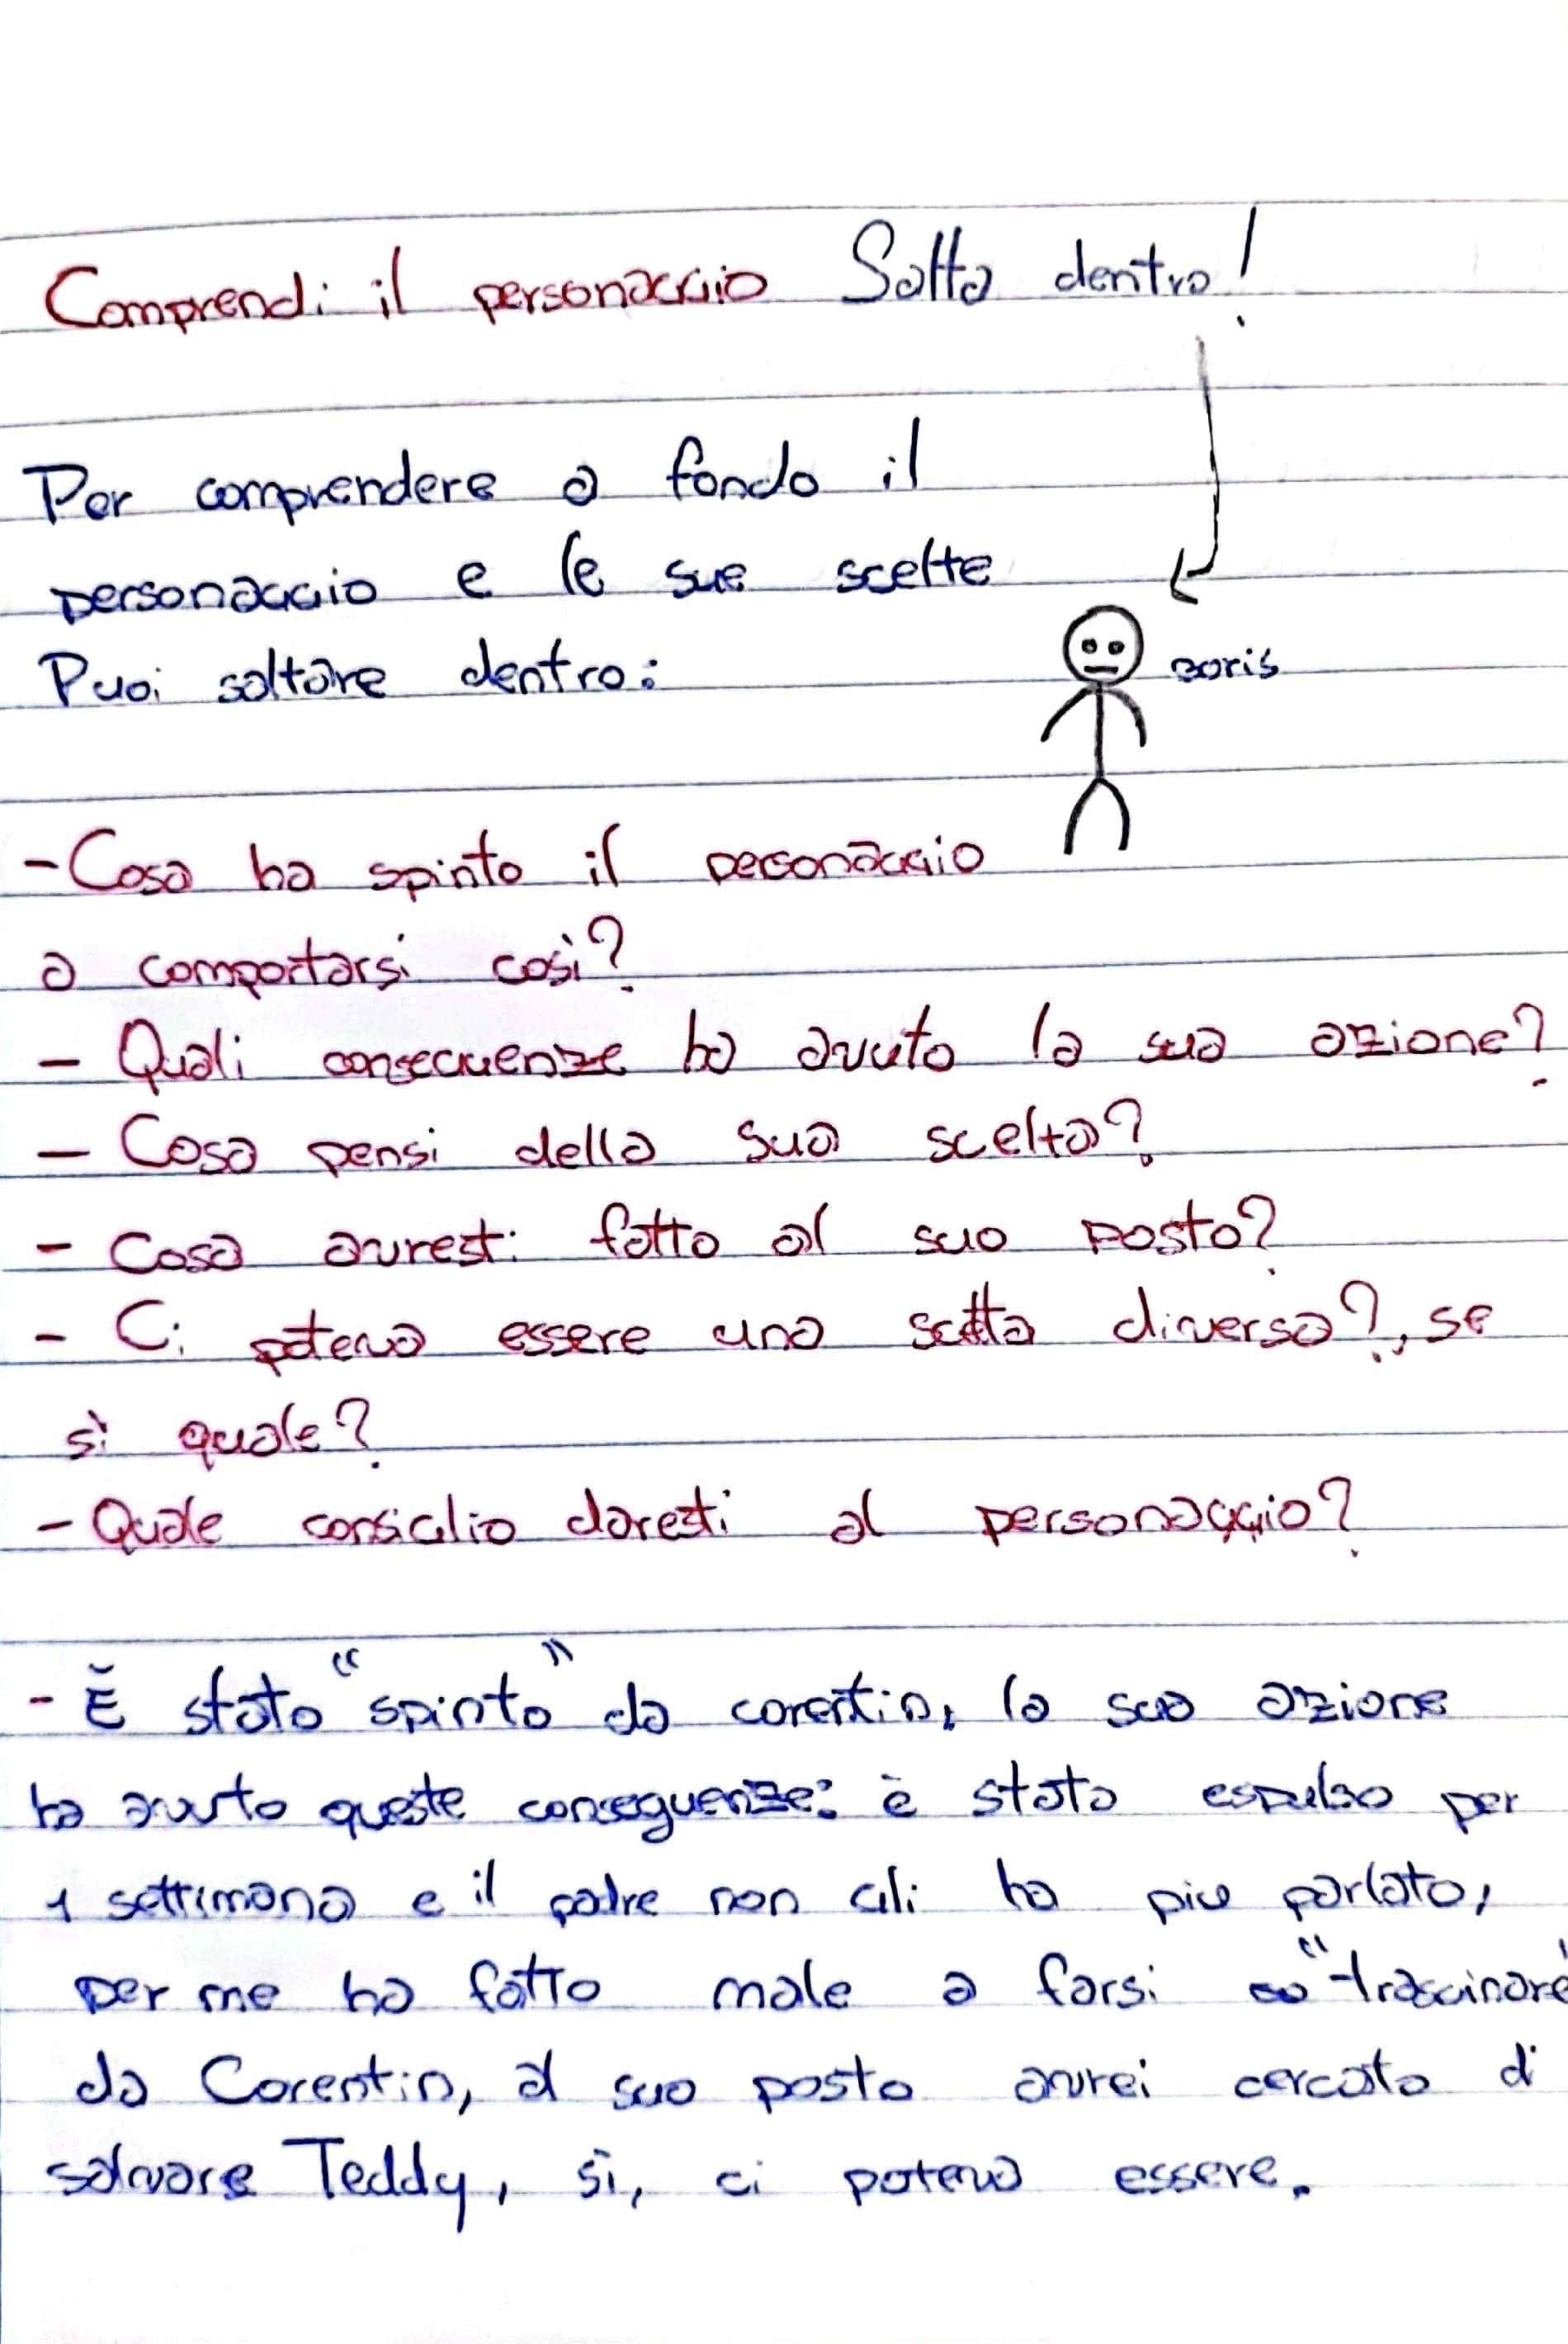 Comprendi il personaggio Salta dentro!
Per comprendere a fondo il
personaggio e le sue scelte
Puoi saltare dentro:
Boris
- Cosa ha spinto il personaggio
a comportarsi così?
- Quali conseguenze ha avuto la sua azione?
- Cosa pensi della sua scelta?
- Cosa avresti fatto al suo posto?
- Ci poteva essere una scelta diversa?, se
sì quale?
- Quale consiglio daresti al personaggio?
- È stato "spinto" da corentin, la sua azione
ha avuto queste conseguenze: è stato espulso per
1 settimana e il padre non gli ha più parlato,
per me ha fatto male a farsi "trascinare"
da Corentin, al suo posto avrei cercato di
salvare Teddy, sì, ci poteva essere.